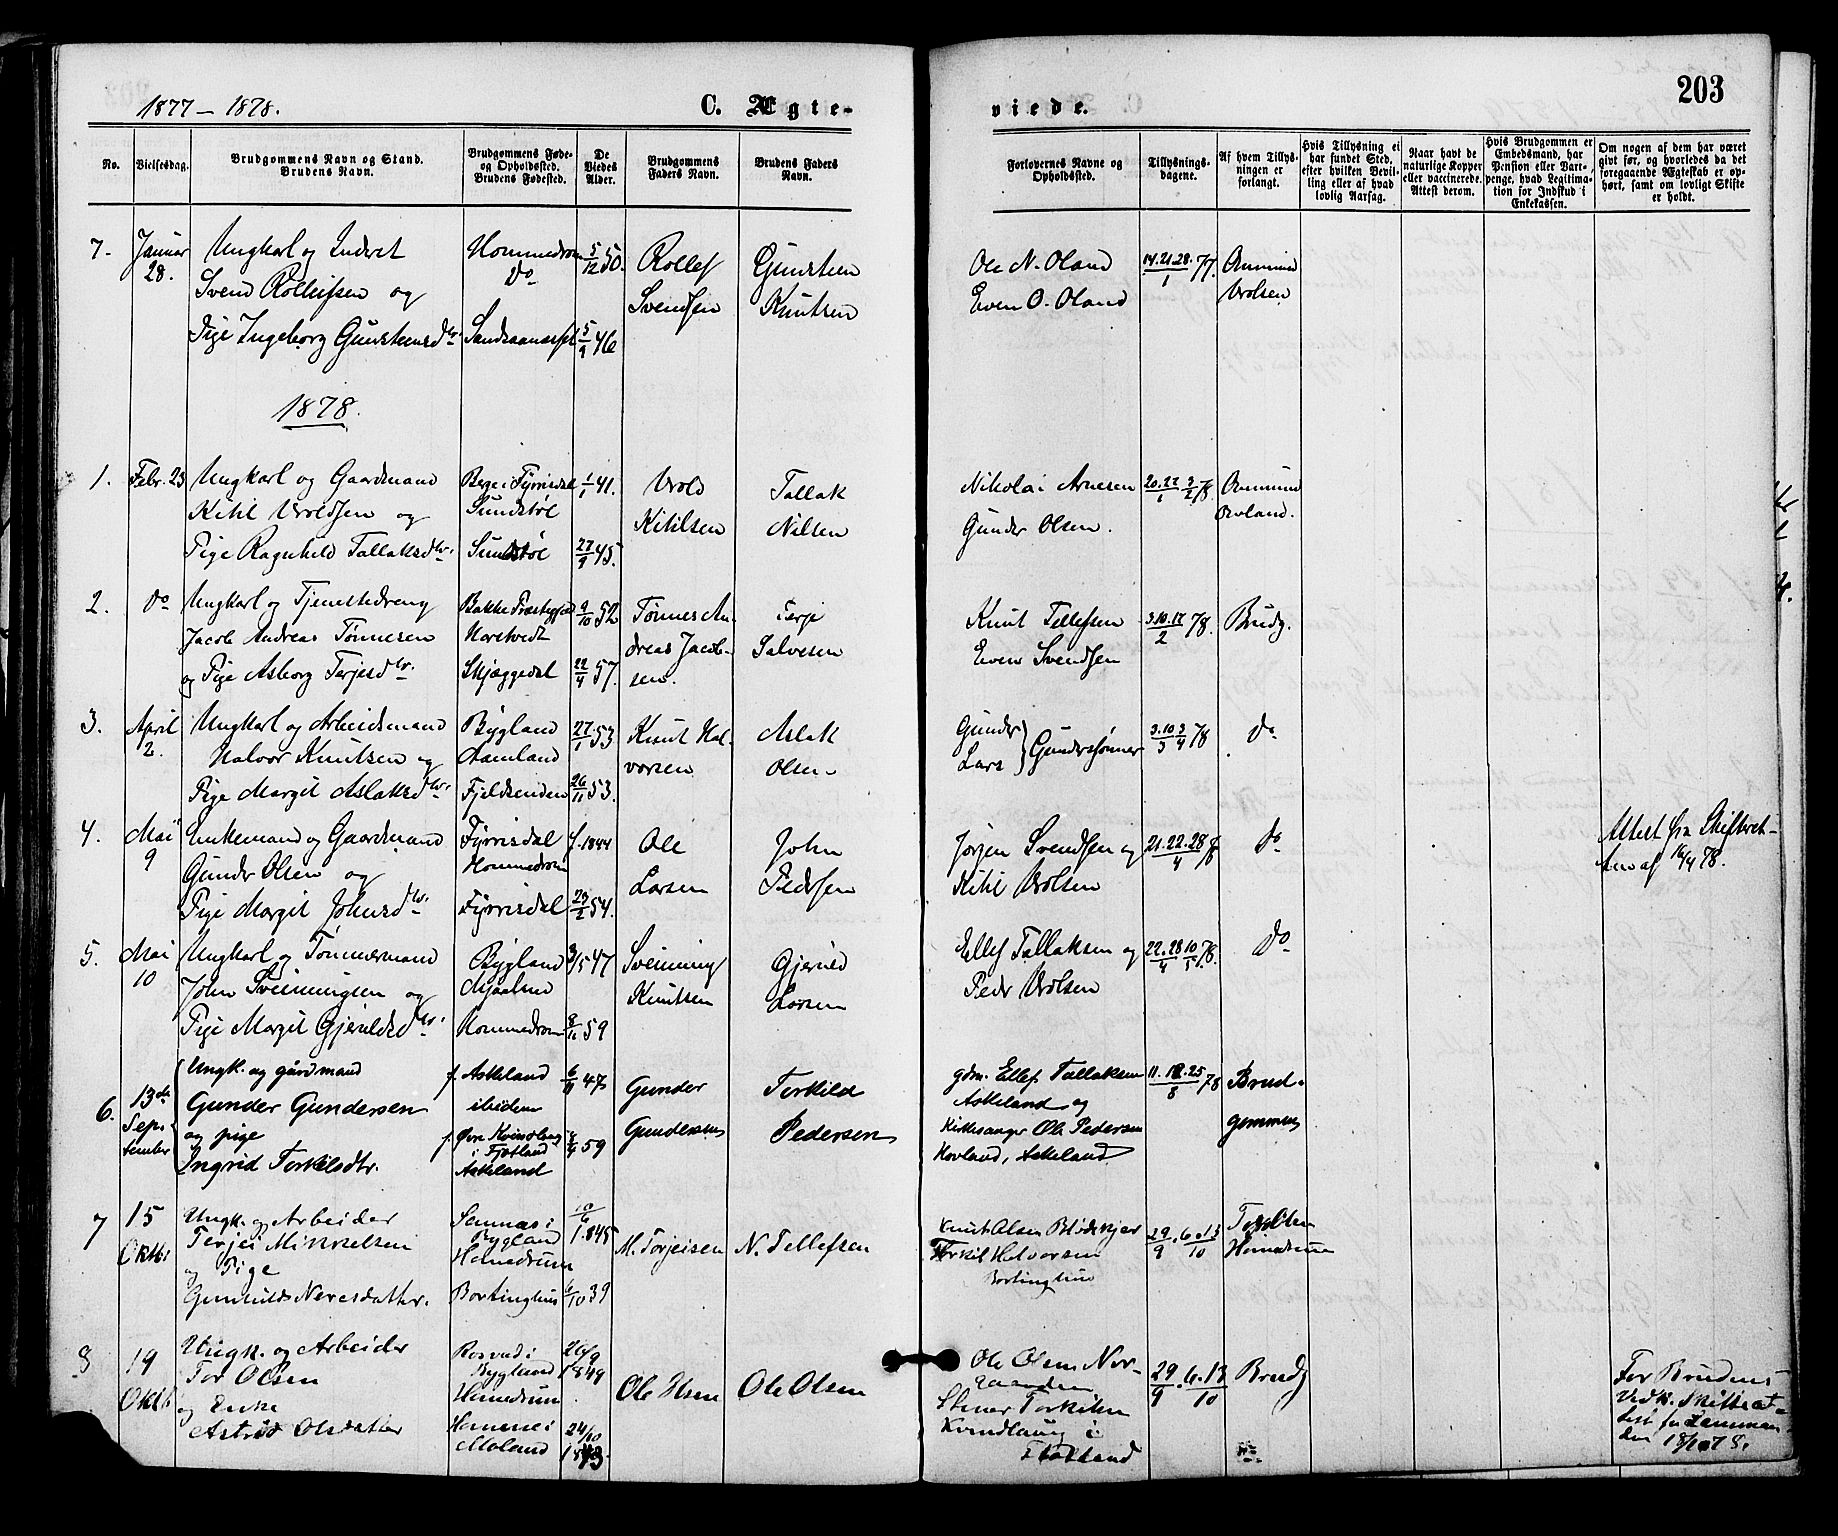 1877 – 1878.
C. Ægte-
viede.
203
No.
Vielsesdag.
Brudgommens Navn og Stand.
Brudens Navn.
Brudgommens Føde-
og Opholdssted.
Brudens Fødested.
De
Viedes
Alder.
Brudgommens
Faders Navn.
Brudens Faders
Navn.
Forlovernes Navne og
Opholdssted.
Tillysnings-
dagene.
Af hvem Tillys-
ningen er
forlangt.
Hvis Tillysning ei
har fundet Sted,
efter hvilken Bevil-
ling eller af hvad
lovlig Aarsag.
Naar havt de
naturlige Kopper
eller vaccinerede.
Attest derom.
Hvis Brudgommen er
Embedsmand, har
Pension eller Vart-
penge, hvad Legitima-
tion for Indskud i
Enkekassen.
Om nogen af dem har været
gift før, og hvorledes da det
foregaaende Ægteskab er op-
hørt, samt om lovligt Skifte
er holdt.
7.
Januar
28.
Ungkarl og Inderst
Svend Rolleifsen og
Pige Ingeborg Gunsteensdtr.
Hommedrom
do
5/12 50.
5/9 46
Rollef
Svendsen
Gunsteen
Knutsen
Ole N. Oland
Even O. Oland
14.21.28./1 77.
Ommund
Vrolsen
1878.
1.
Febr. 23
Ungkarl og Gaardmand
Kitil Vroldsen og
Pige Ragnhild Tallaksdtr.
Berge i Fyrrisdal
Sundstøl
Sundstøl
1/1 41.
27/9 45.
Vrold
Kitilsen
Tallak
Nilsen
Nikolai Arnesen
Gunder Olsen.
Ommund
2.
do
Ungkarl og Tjenestedreng
Jacob Andreas Tønnesen
og Pige Asborg Terjesdtr.
Bakke Præstegjæld
Skjæggedal
9/10 52
22/4 57.
Tønnes An-
dreas Jacob-
sen.
Terje
Salvesen
Knut Tellefsen
Even Svendsen
3.10.17/2 78.
Brudg.
3.
April
2.
Ungkarl og Arbeidsmand
Halvor Knutsen og
Pige Margit Aslaksdtr.
Bygland
Aamland
Fjeldsenden
27/1 53
26/11 53.
Knut Hal-
vorsen
Aslak
Olsen
Gunder
Lars } Gundersønner
3.10/3 3/4 78
do
4.
Mai
9
Enkemand og Gaardmand
Gunder Olsen og
Pige Margit Johnsdtr.
Fyrrisdal
Hommedrom
Fyrrisdal
f. 1844
23/2 54.
Ole
Larsen
John
Pedersen
Jørgen Svendsen og
Kitil Vrolsen
21.22.28/4 78
do
Attest fra Skifteret-
ten af 16/4 78.
5.
Mai
10
Ungkarl og Tømmermand
John Sveinungsen og
Pige Margit Gjeruldsdtr.
Bygland
Hommedrom
3/5 47
8/11 59
Sveinung
Knutsen
Gjeruld
Larsen
Ellef Tallaksen og
Peder Vrolsen
22.28/4 10/5 78.
do
6.
13de
Sep-
tember
Ungk. og gårdmand
Gunder Gundersen
og pige
Ingrid Torkilsdtr.
f. Askeland
ibidem
f. Øvre Kvinslaug
i Fjotland
Askeland
47
59
Gunder
Gundersen
Torkild
Pedersen
gdm. Ellef Tallaksen
Askeland og
Kirkesanger Ole Pedersen
Hovland, Askeland
11.18.25/8 78
Brud-
gommen
7
15
Oktbr
Ungk. og Arbeider
Terjei Mikkelsen
og Pige
i
Bygland
Homedrum
Bortinghus
10/6
1845
6/10 39
M. Torjeisen
N. Tellefsen
Knut Olsen
Torkil Halvorsen
Bortinghus
29/9. 6.13/10
Homedrum
8
19
Oktb
Ungk. og Arbeider
Tor Olsen
og Enke
Astrid Olsdatter
Rosvad i
Bygland
Homedrum
i
Moland
26/9
1849
24/10
Ole Olsen
Ole Olsen
Ole Olsen Nor-
gaarden
Stener Torkilsen
Kvindlaug i
Fjotland
29/9. 6.13/10
Brudg
For Brudens
Vedk. Skifteat-
test fra Lensman-
den 18/10 78.